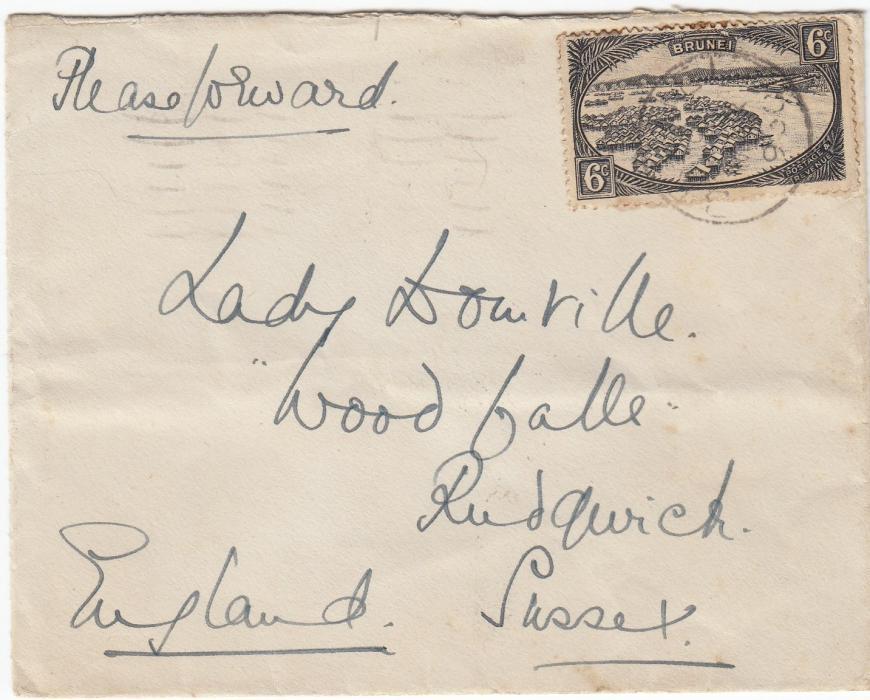 Please forward.
BRUNEI
6c
6c
POSTAGE
REVENUE
Lady Domville.
"Woodfalls"
Rudgwick.
Sussex.
England.